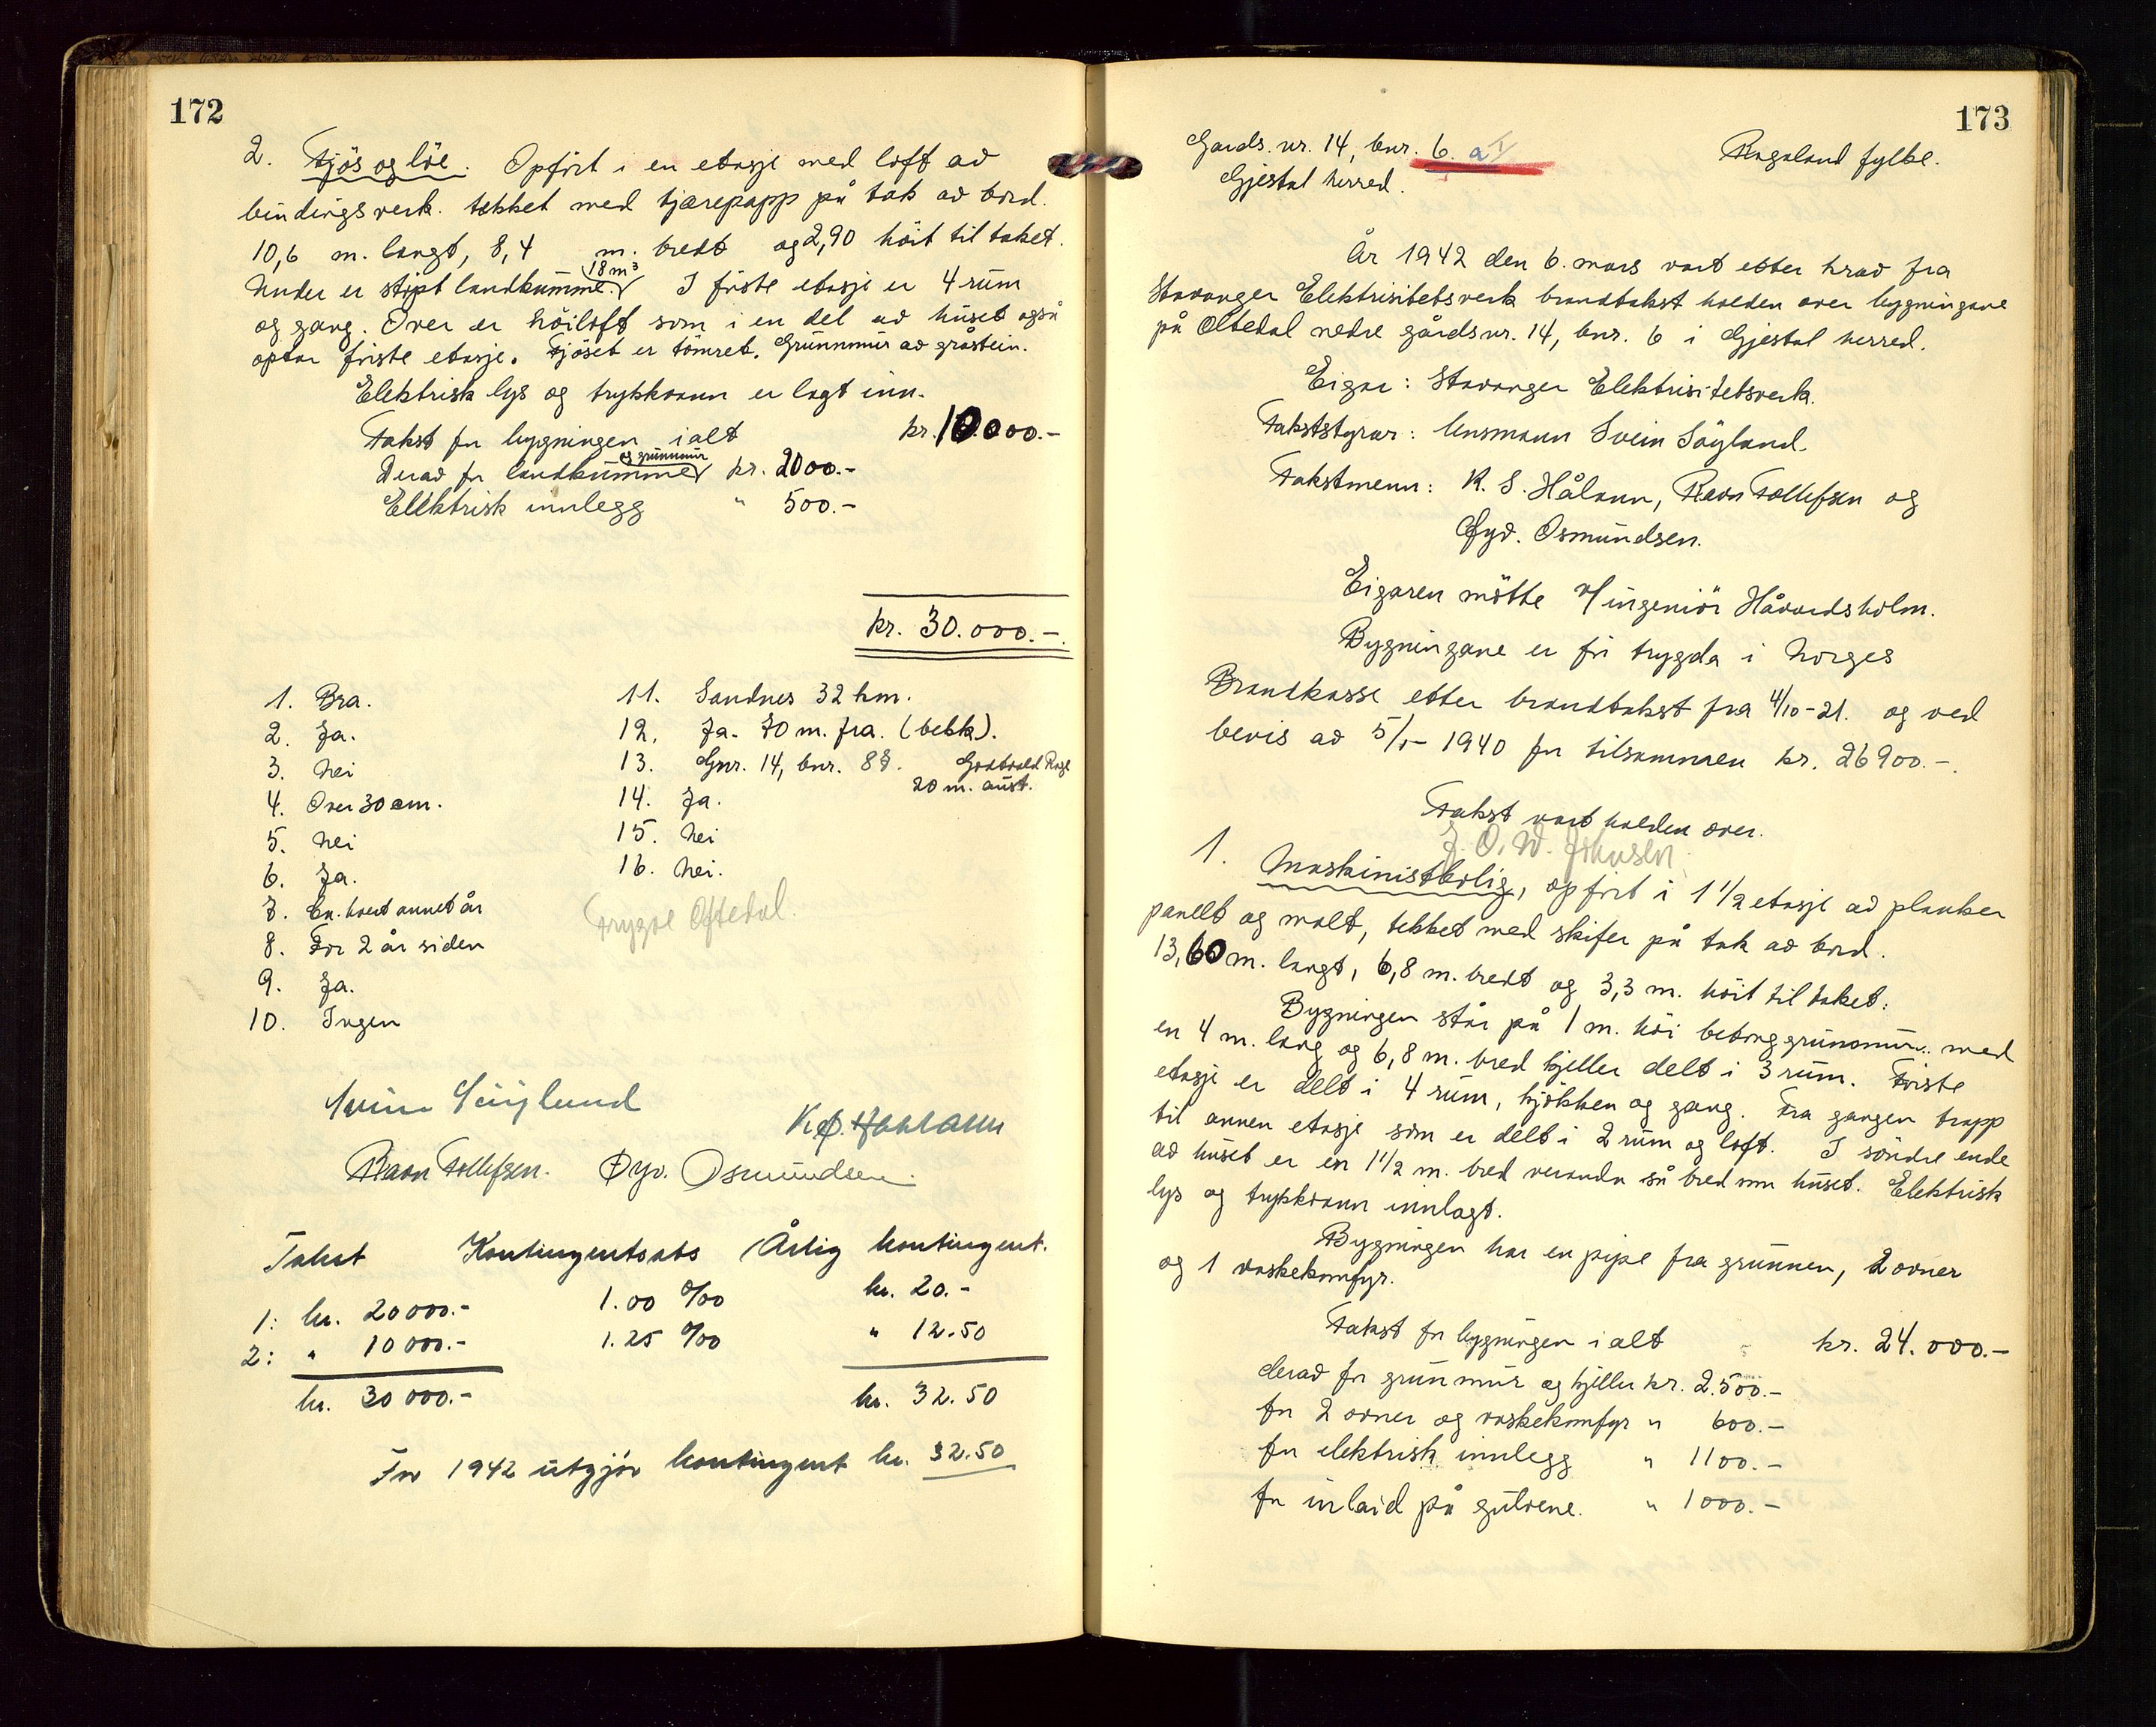 172
2. Fjös og löe. Opfört i en etasje med loft av
bindingsverk. tekket med tjærepapp på tak av bord.
10,6 m. langt, 8,4 m. bredt og 2,90 höit til taket.
18 m³
Under er stöpt landkumme. I förste etasje er 4 rum
og gang. Over er höiloft som i en del av huset også
optar förste etasje. Fjöset er tömret. Grunnmur av gråstein.
Elektrisk lys og trykkvann er lagt inn.
Takst for bygningen ialt kr. 10.000.-
og grunnmur
Derav for landkumme kr. 2000.-
Elektrisk innlegg " 500.-
kr. 30.000.-
1. Bra.
2. Ja.
3. Nei
4. Over 30 cm.
5. Nei
6. Ja.
7. En. hvert annet år
8. For 2 år siden
9. Ja.
10. Ingen
11. Sandnes 32 km.
12. Ja. 70 m. fra. (bekk).
13. Gnr. 14, bnr. 88. Godtvald Rage
20 m. aust.
14. Ja.
15. Nei
16. Nei.
Trygve Oftedal.
Svein Söyland
K. S. Håland
Ravn Tollefsen. Öyv. Osmundsen.
Takst Kontingentsats Årlig kontingent.
1: kr. 20000.- 1.00 ‰ kr. 20.-
2: " 10000.- 1.25 ‰ " 12.50
kr. 30000.- kr. 32.50
For 1942 utgjör kontingent kr. 32.50
173
Gards. nr. 14, bnr. 6. a
Rogaland fylke.
Gjestal herred.
År 1942 den 6. mars vart etter krav fra
Stavanger Elektrisitetsverk brandtakst holden over bygningane
på Oltedal nedre gårdsnr. 14, bnr. 6 i Gjestal herred.
Eigar: Stavanger Elektrisitetsverk.
Takststyrar: Lensmann Svein Söyland.
Takstmenn: K. S. Håland, Ravn Tollefsen og
Öyv. Osmundsen.
Eigaren mötte v/ ingeniör Håvardsholm.
Bygningane er för trygda i Norges
Brandkasse etter brandtakst fra 4/10-21. og ved
bevis av 5/1- 1940 for tilsammen kr. 26900.-.
Takst vart holden over.
J. O. W. Johnsen
1. Maskinistbolig, opfört i 1 1/2 etasje av planker
panelt og malt, tekket med skifer på tak av bord.
13,60 m. langt, 6,8 m. bredt og 3,3 m. höit til taket.
Bygningen står på 1 m. höi betonggrunnmur. med
en 4 m. lang og 6,8 m. bred kjeller delt i 3 rum. Förste
etasje er delt i 4 rum, kjökken og gang. Fra gangen trapp
til annen etasje som er delt i 2 rum og loft. I söndre ende
av huset er en 1 1/2 m. bred veranda så bred som huset. Elektrisk
lys og trykkvann innlagt.
Bygningen har en pipe fra grunnen, 2 ovner
og 1 vaskekomfyr.
Takst for bygningen i alt kr. 24.000.-
derav for grunnmur og kjeller kr. 2.500.-
for 2 ovner og vaskekomfyr " 600.-
for elektrisk innlegg " 1100.-
for inlaid på gulvene. " 1000.-